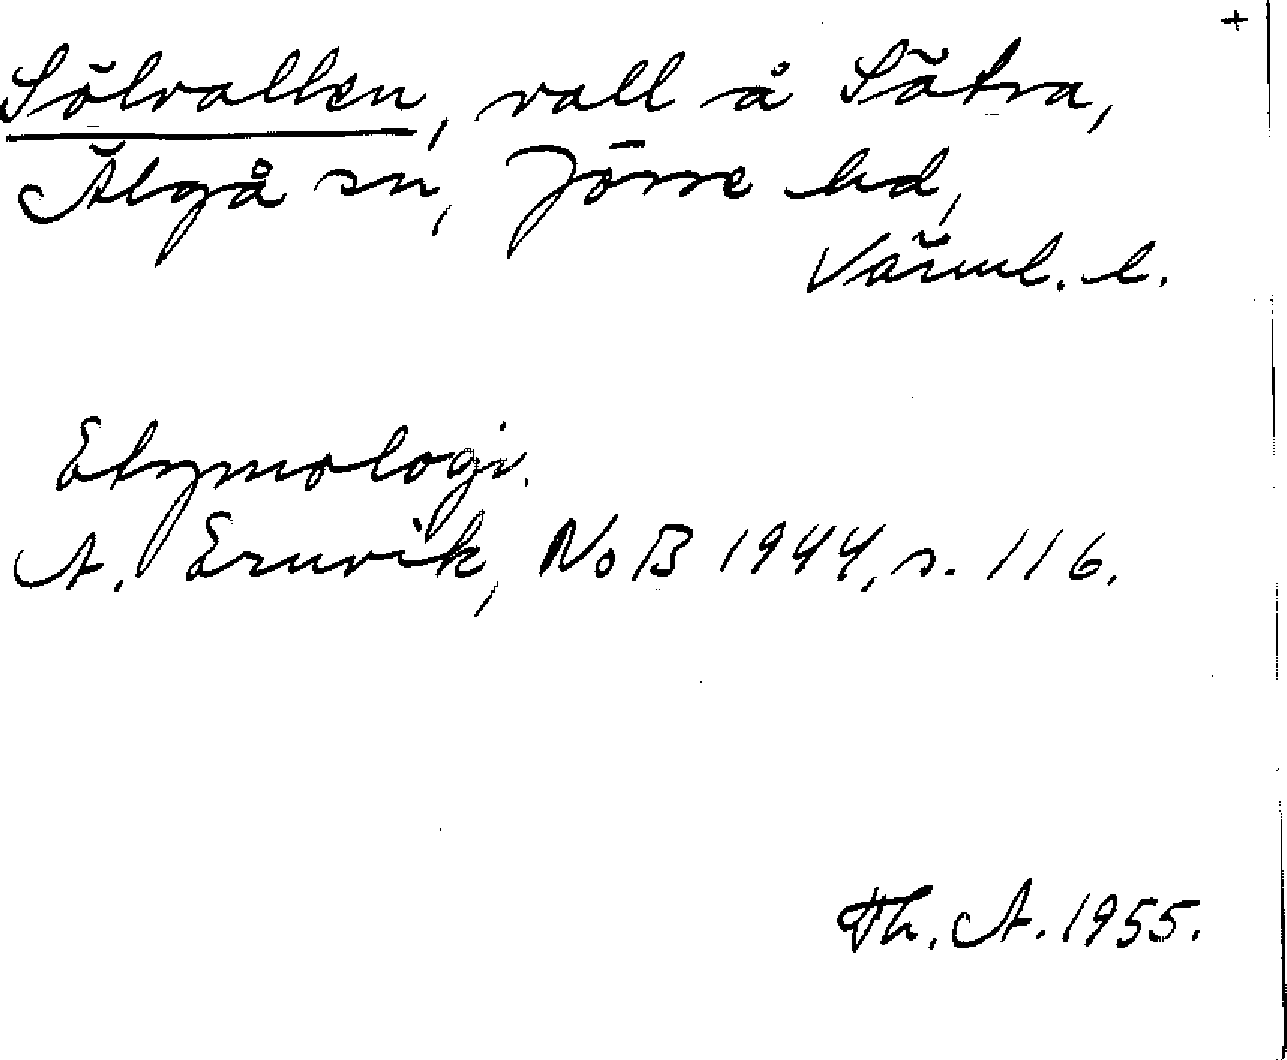 +
Sölvallen, vall å Sätra,
Älgå sn, Jösse hd,
Värml. l.
Etymologi.
A. Ernvik, NoB 1944, s. 116.
Th. A. 1955.